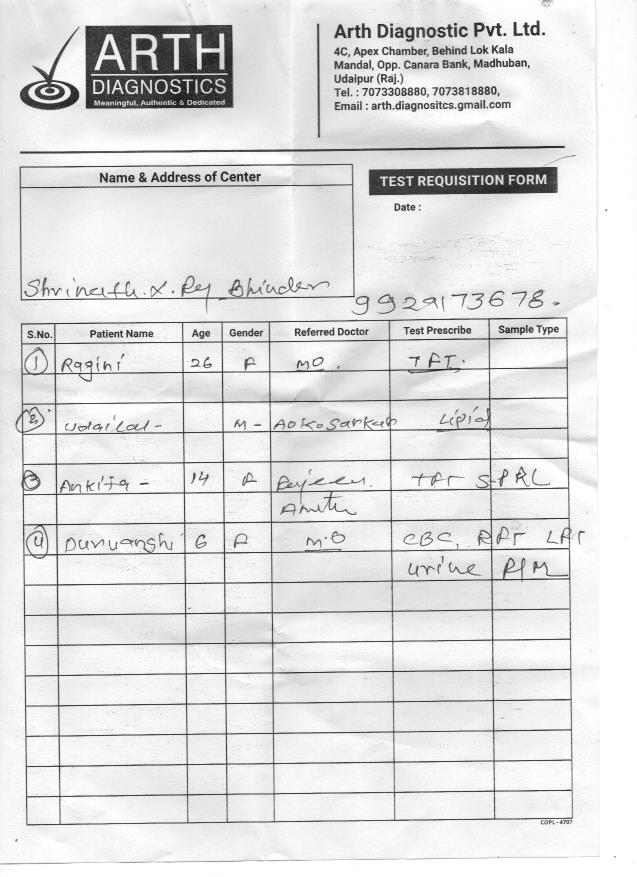 ARTH
DIAGNOSTICS
Meaningful, Authentic & Dedicated
Arth Diagnostic Pvt. Ltd.
4C, Apex Chamber, Behind Lok Kala
Mandal, Opp. Canara Bank, Madhuban,
Udaipur (Raj.)
Tel. : 7073308880, 7073818880,
Email : arth.diagnositcs.gmail.com
Name & Address of Center
TEST REQUISITION FORM
Date :
Shrinath X. Ray Bhinder
9929173678.
S.No. Patient Name Age Gender Referred Doctor Test Prescribe Sample Type
1 Ragini 26 F MO. TFT.
2 Udailal - M - Lipid
3 Ankita - 14 F TFT S-PRL
4 6 F M.O CBC, RFT LFT
urine R/M
COPL-4707